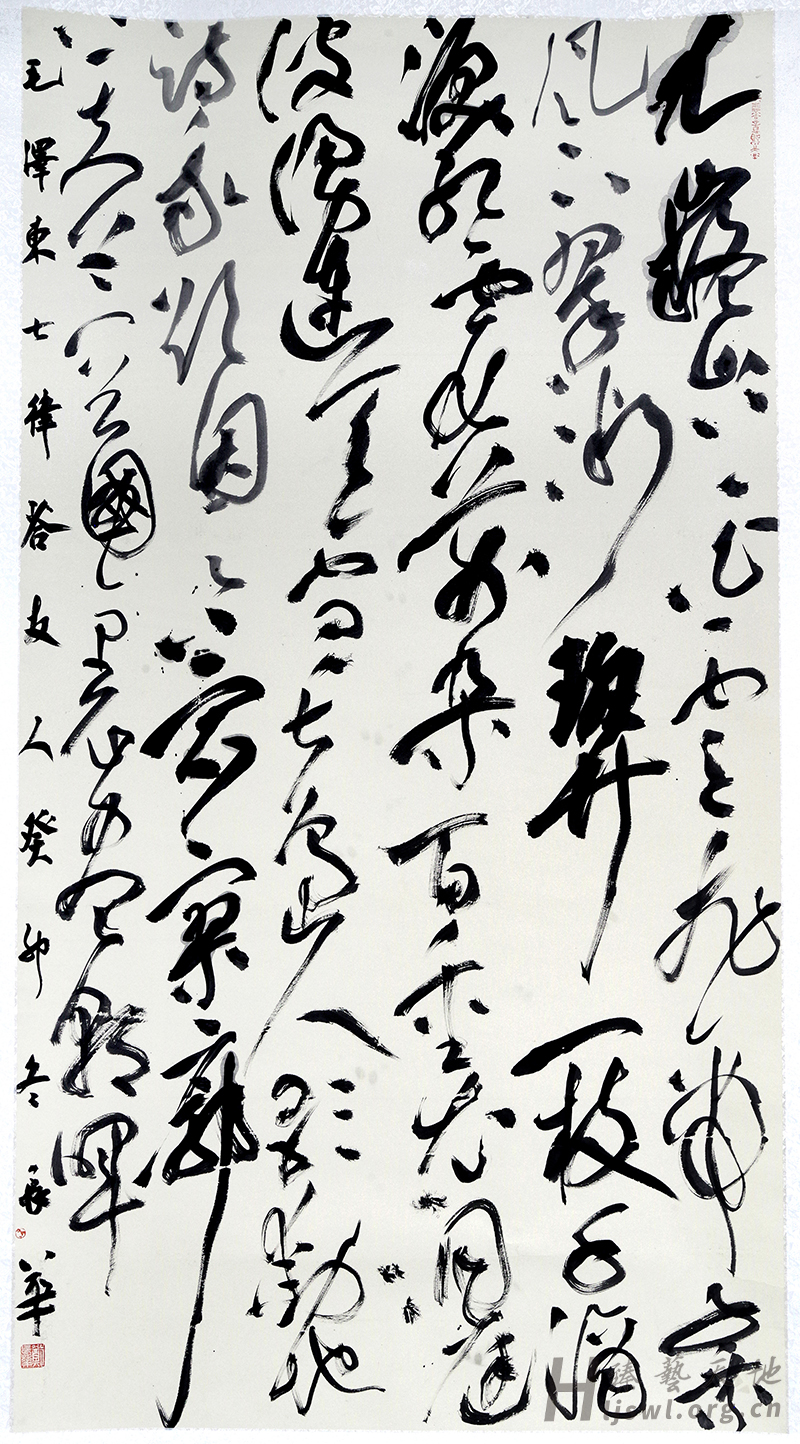 九嶷山上白雲飛帝子乘
風下翠微斑竹一枝千滴
淚紅霞萬朵百重衣洞庭
波涌連天雪長島人歌動地
詩我欲因之夢寥廓
芙蓉國里盡朝暉
毛澤東七律答友人癸卯冬華
ljswl.org.cn